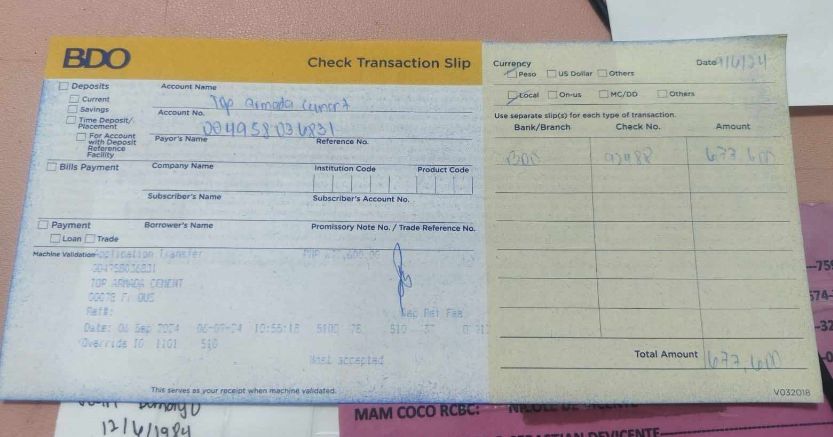 BDO
Check Transaction Slip
Deposits
Current
Savings
Time Deposit/
Placement
For Account
with Deposit
Reference
Facility
Account Name
Top armada cement
Account No.
004958036831
Payor's Name Reference No.
Bills Payment
Company Name Institution Code Product Code
Subscriber's Name Subscriber's Account No.
Payment
Loan Trade
Borrower's Name Promissory Note No. / Trade Reference No.
Machine Validation
Application Transfer PHP
TOP ARMADA CEMENT
Ref#:
Date: 06 Sep 2024 06-09-24 10:56:18 5100
Override ID 1101 510
Host accepted
This serves as your receipt when machine validated.
Currency
Peso US Dollar Others
Date 9/6/24
Local On-us MC/DD Others
Use separate slip(s) for each type of transaction.
Bank/Branch Check No. Amount
BDO 677,600
Total Amount 677,600
V032018
12/6/1984
MAM COCO RCBC: